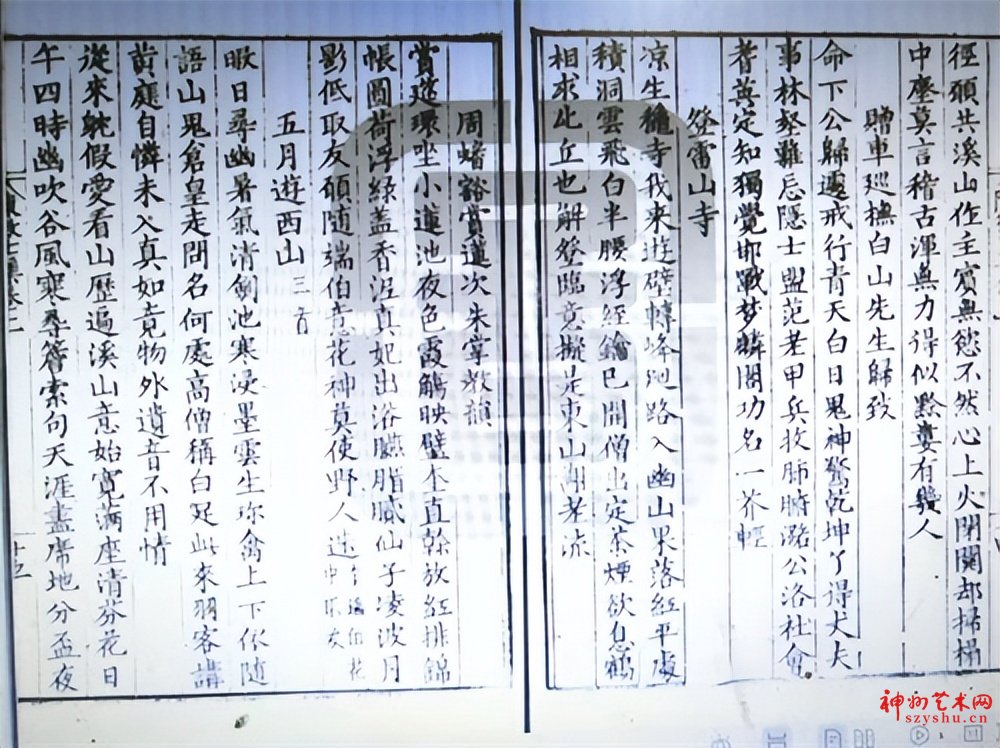 徑頭共溪山作主賓無慾不然心上火閉関却掃榻
中塵莫言稽古渾無力得似黔婁有幾人
贈車巡撫白山先生歸致
命下公歸遽戒行青天白日鬼神驚乾坤了得大夫
事林壑難忘隱士盟范老甲兵救肺腑潞公洛社會
耆英定知獨覺邯戰夢麟閣功名一芥輕
登雷山寺
凉生蕭寺我來遊磴轉峰迴路入幽山果落紅平處
積洞雲飛白半腰浮經鑰已開僧出定茶煙欲息鶴
相求此丘也解登臨意擬是東山謝老流
周蟠谿賞蓮次朱掌教韻
賞筵環坐小蓮池夜色霞觴映璧本直幹放紅排錦
帳圓荷浮綠蓋香泥真妃出浴臙脂膩仙子凌波月
影低取友願随端伯意花神莫使野人迷
五月遊西山 三首
暇日尋幽暑氣清劍池寒浸墨雲生珎禽上下依随
語山鬼倉皇走問名何處高僧稱白足此來羽客講
黄庭自憐未入真如竟物外遺音不用情
從來躭假愛看山歷遍溪山意始寛满座清芬花日
午四時幽吹谷風寒尋簷索句天涯盡席地分盃夜
十五
神州艺术网
szyshu.cn